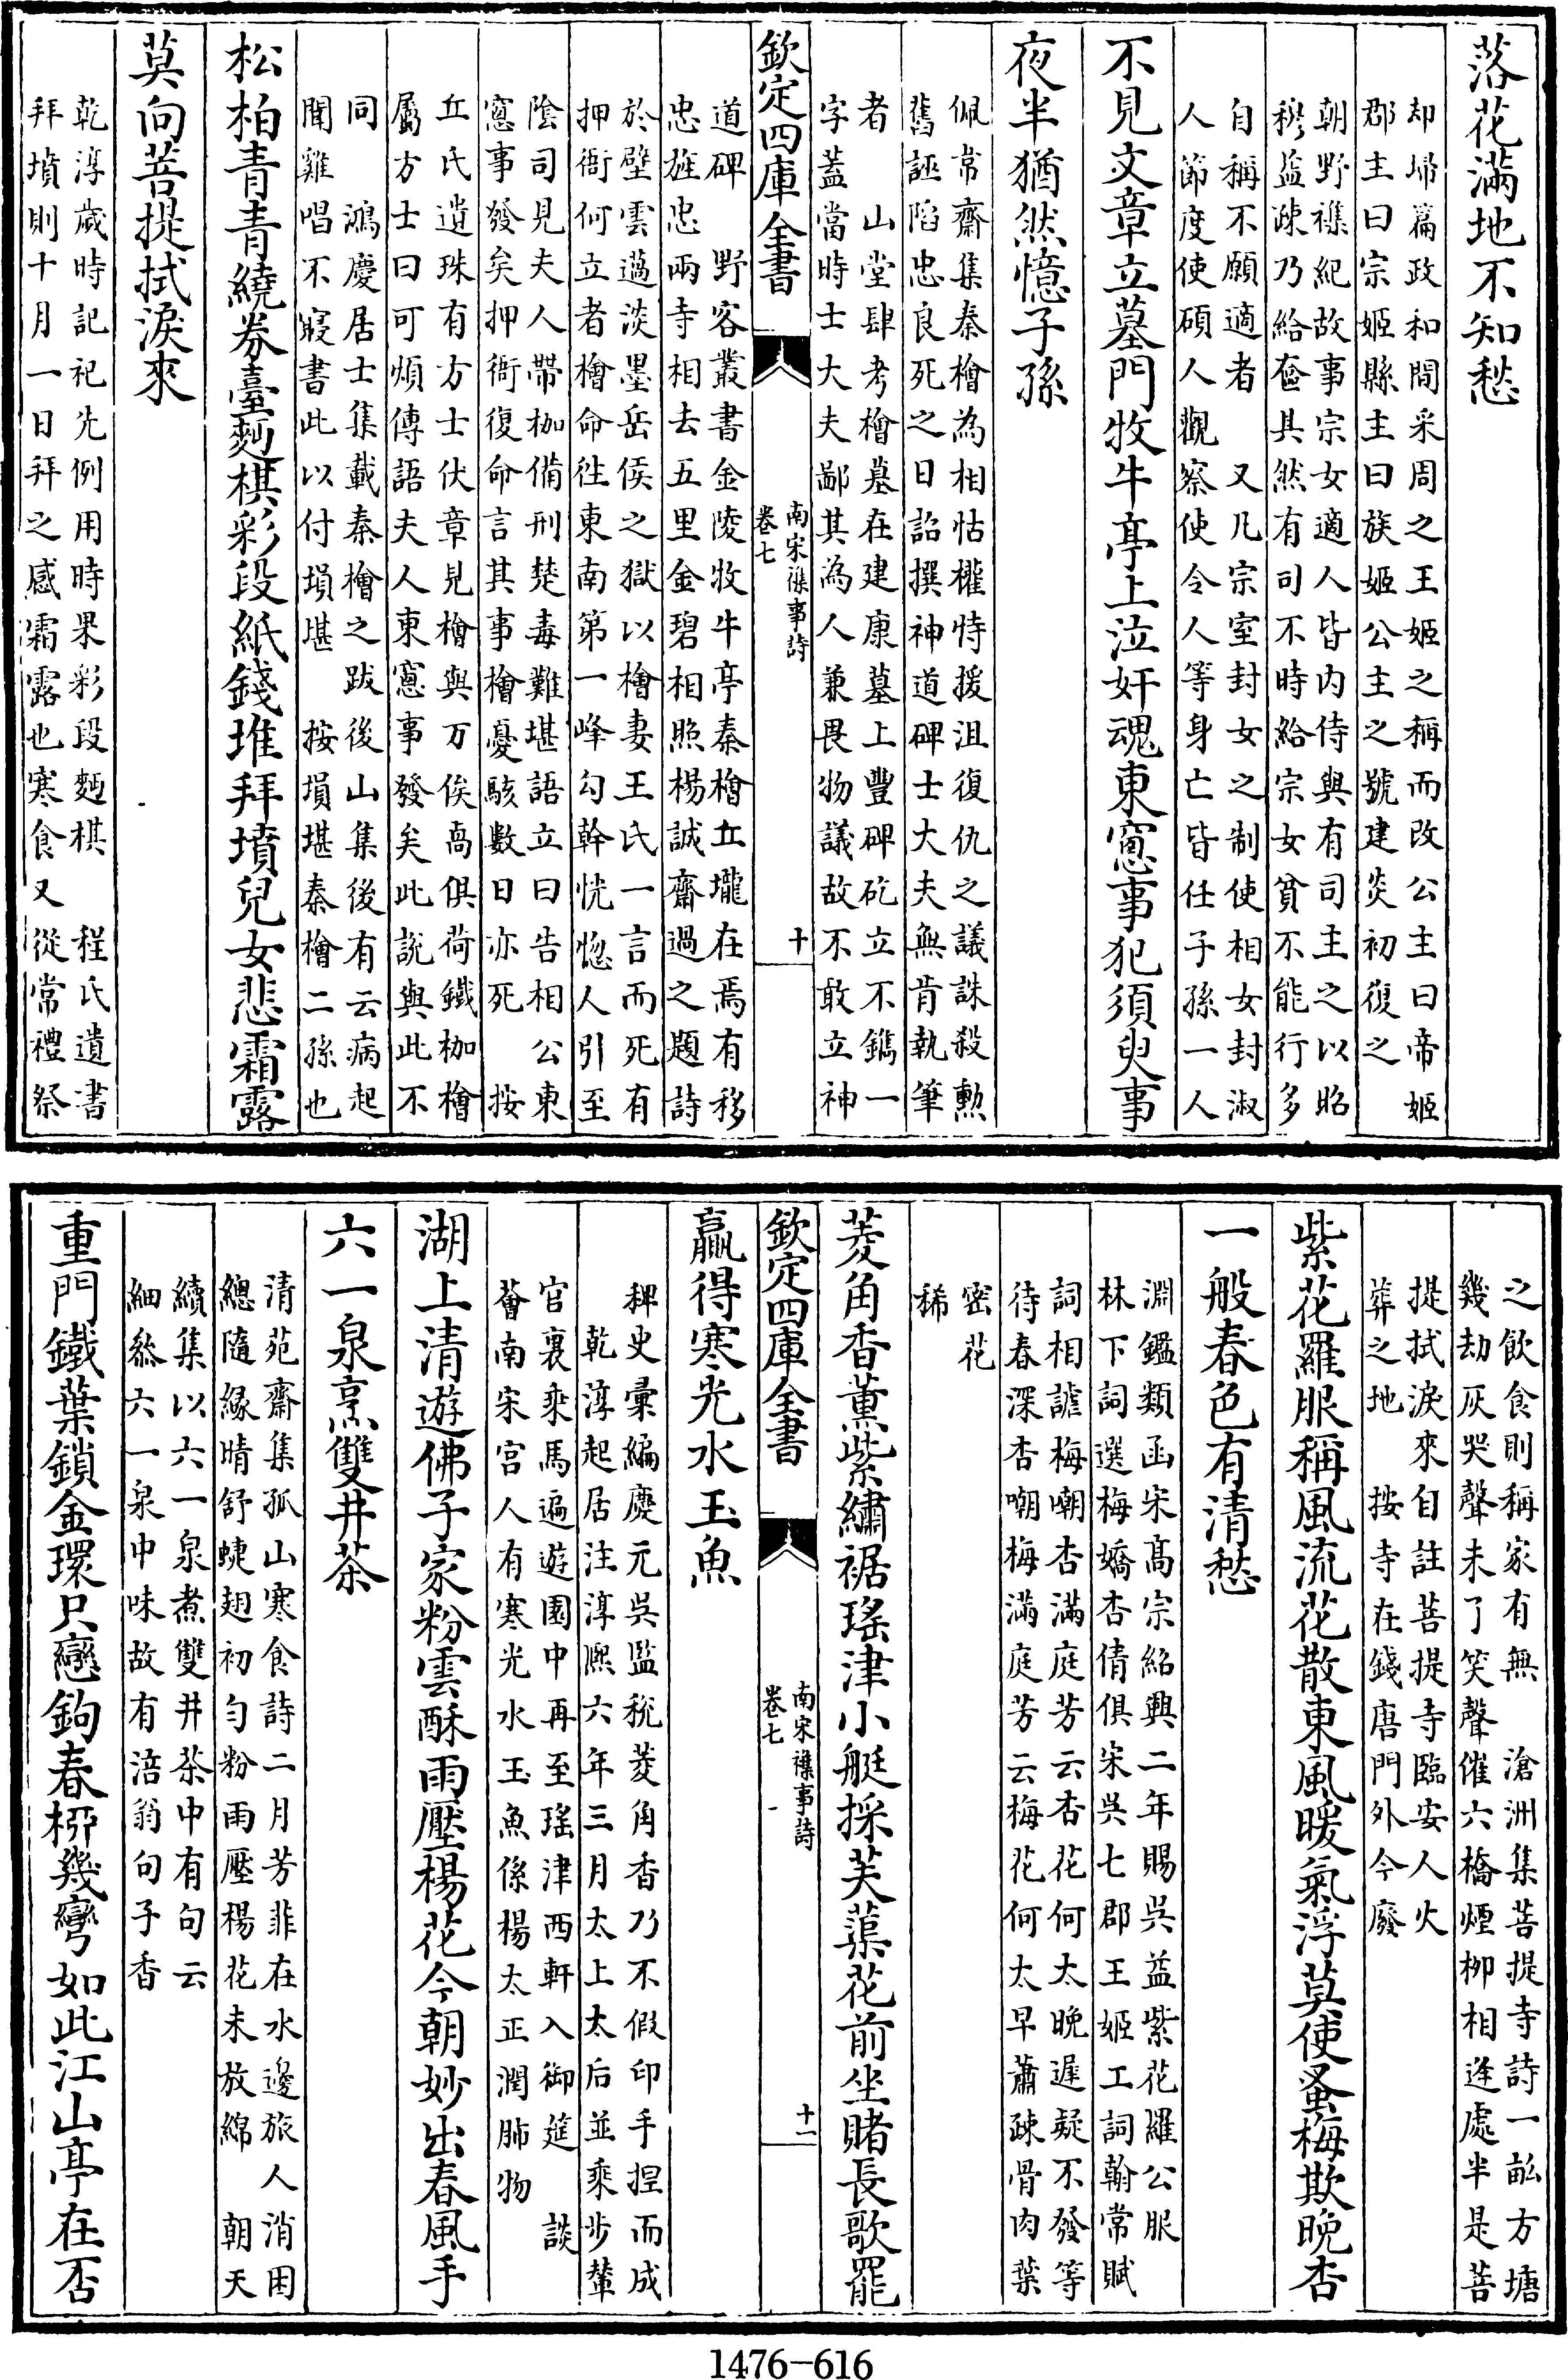 落花滿地不知愁
却埽篇政和間采周之王姬之稱而改公主曰帝姬
郡主曰宗姬縣主曰族姬公主之號建炎初復之
朝野襍紀故事宗女適人皆内侍與有司主之以昭
穆益疎乃給奩具然有司不時給宗女貧不能行多
自稱不願適者　又凡宗室封女之制使相女封淑
人節度使碩人觀察使令人等身亡皆任子孫一人
不見文章立墓門牧牛亭上泣奸魂東窻事犯須臾事
夜半猶然憶子孫
佩常齋集秦檜為相怙權恃援沮復仇之議誅殺勲
舊誣陷忠良死之日詔撰神道碑士大夫無肯執筆
者　山堂肆考檜墓在建康墓上豐碑矻立不鐫一
字葢當時士大夫鄙其為人兼畏物議故不敢立神
欽定四庫全書
南宋襍事詩
卷七
十
道碑　野客叢書金陵牧牛亭秦檜丘壠在焉有移
忠旌忠兩寺相去五里金碧相照楊誠齋過之題詩
於壁雲邁淡墨岳侯之獄以檜妻王氏一言而死有
押衙何立者檜命徃東南第一峰勾幹恍惚人引至
陰司見夫人帶枷備刑楚毒難堪語立曰告相公東
窻事發矣押衙復命言其事檜憂駭數日亦死　按
丘氏遺珠有方士伏章見檜與万俟卨俱荷鐵枷檜
屬方士曰可煩傳語夫人東窻事發矣此說與此不
同　鴻慶居士集載秦檜之跋後山集後有云病起
聞雞唱不寢書此以付塤堪　按塤堪秦檜二孫也
松柏青青繞券臺麫棋彩段紙錢堆拜墳兒女悲霜露
莫向菩提拭淚來
乾淳歲時記祀先例用時果彩段麫棋　程氏遺書
拜墳則十月一日拜之感霜露也寒食又從常禮祭
之飲食則稱家有無　滄洲集菩提寺詩一畝方塘
幾劫灰哭聲未了笑聲催六橋煙柳相逢處半是菩
提拭淚來自註菩提寺臨安人火
葬之地　按寺在錢唐門外今廢
紫花羅服稱風流花散東風暖氣浮莫使蚤梅欺晚杏
一般春色有清愁
淵鑑類函宋髙宗紹興二年賜吳益紫花羅公服
林下詞選梅嬌杏倩俱宋吳七郡王姬工詞翰常賦
詞相謔梅嘲杏滿庭芳云杏花何太晚遲疑不發等
待春深杏嘲梅滿庭芳云梅花何太早蕭疎骨肉葉
密花
稀
菱角香薰紫繡裾瑤津小艇採芙蕖花前坐賭長歌罷
欽定四庫全書
南宋襍事詩
卷七
十一
贏得寒光水玉魚
稗史彙編慶元吳監稅菱角香乃不假印手捏而成
乾淳起居注淳熈六年三月太上太后並乘步輦
官裏乘馬遍遊園中再至瑤津西軒入御筵　談
薈南宋宮人有寒光水玉魚係楊太正潤肺物
湖上清遊佛子家粉雲酥雨壓楊花今朝妙出春風手
六一泉烹雙井茶
清苑齋集孤山寒食詩二月芳菲在水邊旅人消困
總隨緣晴舒蜨翅初勻粉雨壓楊花未放綿　朝天
續集以六一泉煮雙井茶中有句云
細㕘六一泉中味故有涪翁句子香
重門鐵葉鎖金環只戀鉤春栁幾彎如此江山亭在否
1476-616